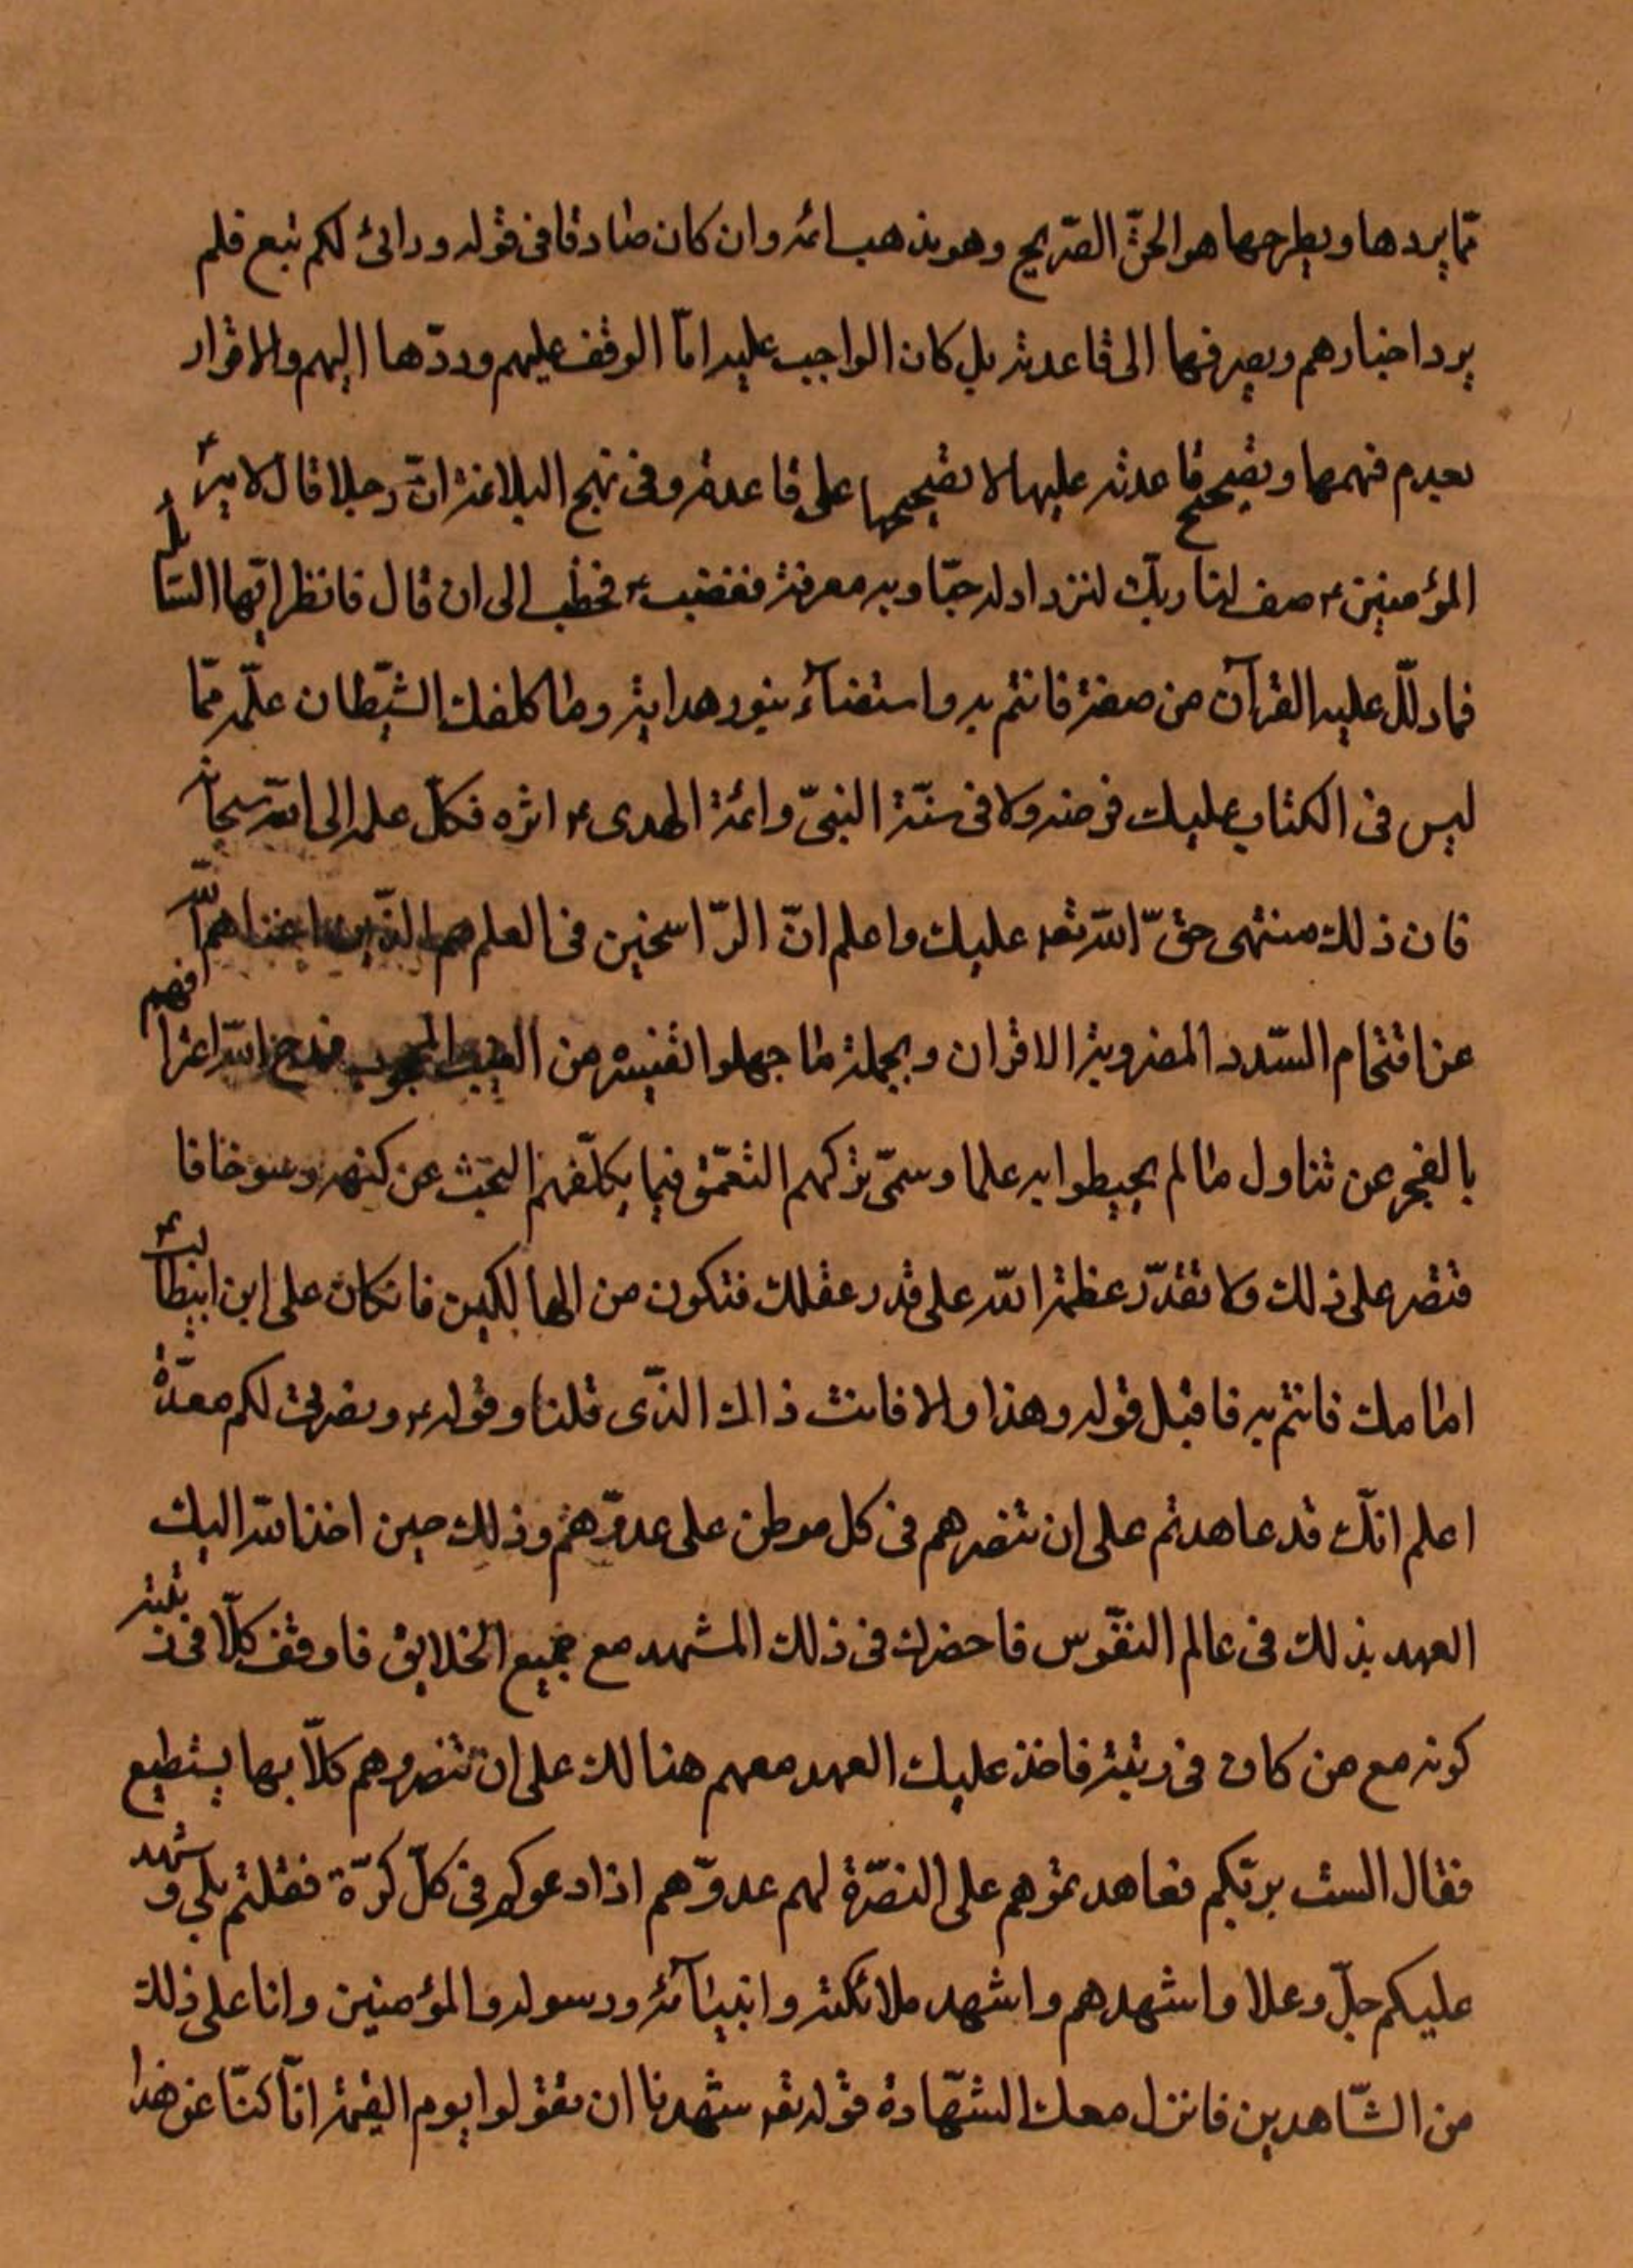 ممّا يردها ويطرحها هو الحقّ الصّريح وهو مذهب ائمته وان كان صادقا فى قوله ورائى لكم تبع فلم
يرد اخبارهم ويصرفها الى قاعدته بل كان الواجب عليه امّا الوقف عليهم وردّها اليهم والاقرار
بعدم فهمها وتصحيح قاعدته عليها لا تصحيحها على قاعدته وفى نهج البلاغة انّ رجلا قال لامير
المؤمنين ع صف لنا ربك لنزداد له حبّا وبه معرفة فغضب ع فخطب الى ان قال فانظر ايّها السّائل
فما دلّك عليه القرآن من صفته فائتم به واستضآء بنور هدايته وما كلفك الشّيطان علمه ممّا
ليس فى الكتاب عليك فرضه ولا فى سنّة النبىّ وائمة الهدى ع اثره فكل علمه الى الله سبحانه
فان ذلك منتهى حقّ الله تعه عليك واعلم انّ الرّاسخين فى العلم هم الذّين اغناهم الله
عن اقتحام السّدد المضروبة الاقران وبجملة ما جهلوا تفسيره من الغيب المحجوب فمدح الله اعترافهم
بالعجز عن تناول ما لم يحيطوا به علما وسمّى تركهم التعمّق فيما يكلّفهم البحث عن كنهه رسوخا فا
قتصر على ذلك ولا تقدّر عظمة الله على قدر عقلك فتكون من الهالكين فانكان على ابن ابيطالب ع
امامك فائتم به فاقبل قوله وهذا والا فانت ذاك الذّى قلنا وقوله ع ونصرتى لكم معدّة
اعلم انّك قد عاهدتم على ان تنصرهم فى كل موطن على عدوّهم وذلك حين اخذ الله اليك
العهد بذلك فى عالم النفّوس فاحضرك فى ذلك المشهد مع جميع الخلايق فاوقف كلّا فى رتبته
كونه مع من كان فى رتبته فاخذ عليك العهد معهم هنالك على ان تنصروهم كلّا بها يستطيع
فقال الست بربّكم فعاهدتموهم على النصّرة لهم عدوّهم اذا دعوكم فى كلّ كرّة فقلتم بلى وشهد
عليكم جلّ وعلا واشهدهم واشهد ملائكته وانبيآئه ورسوله والمؤمنين وانا على ذلك
من الشّاهدين فانزل معك الشّهادة قوله تعه شهدنا ان تقولوا يوم القيمة انّا كنّا عن هذا